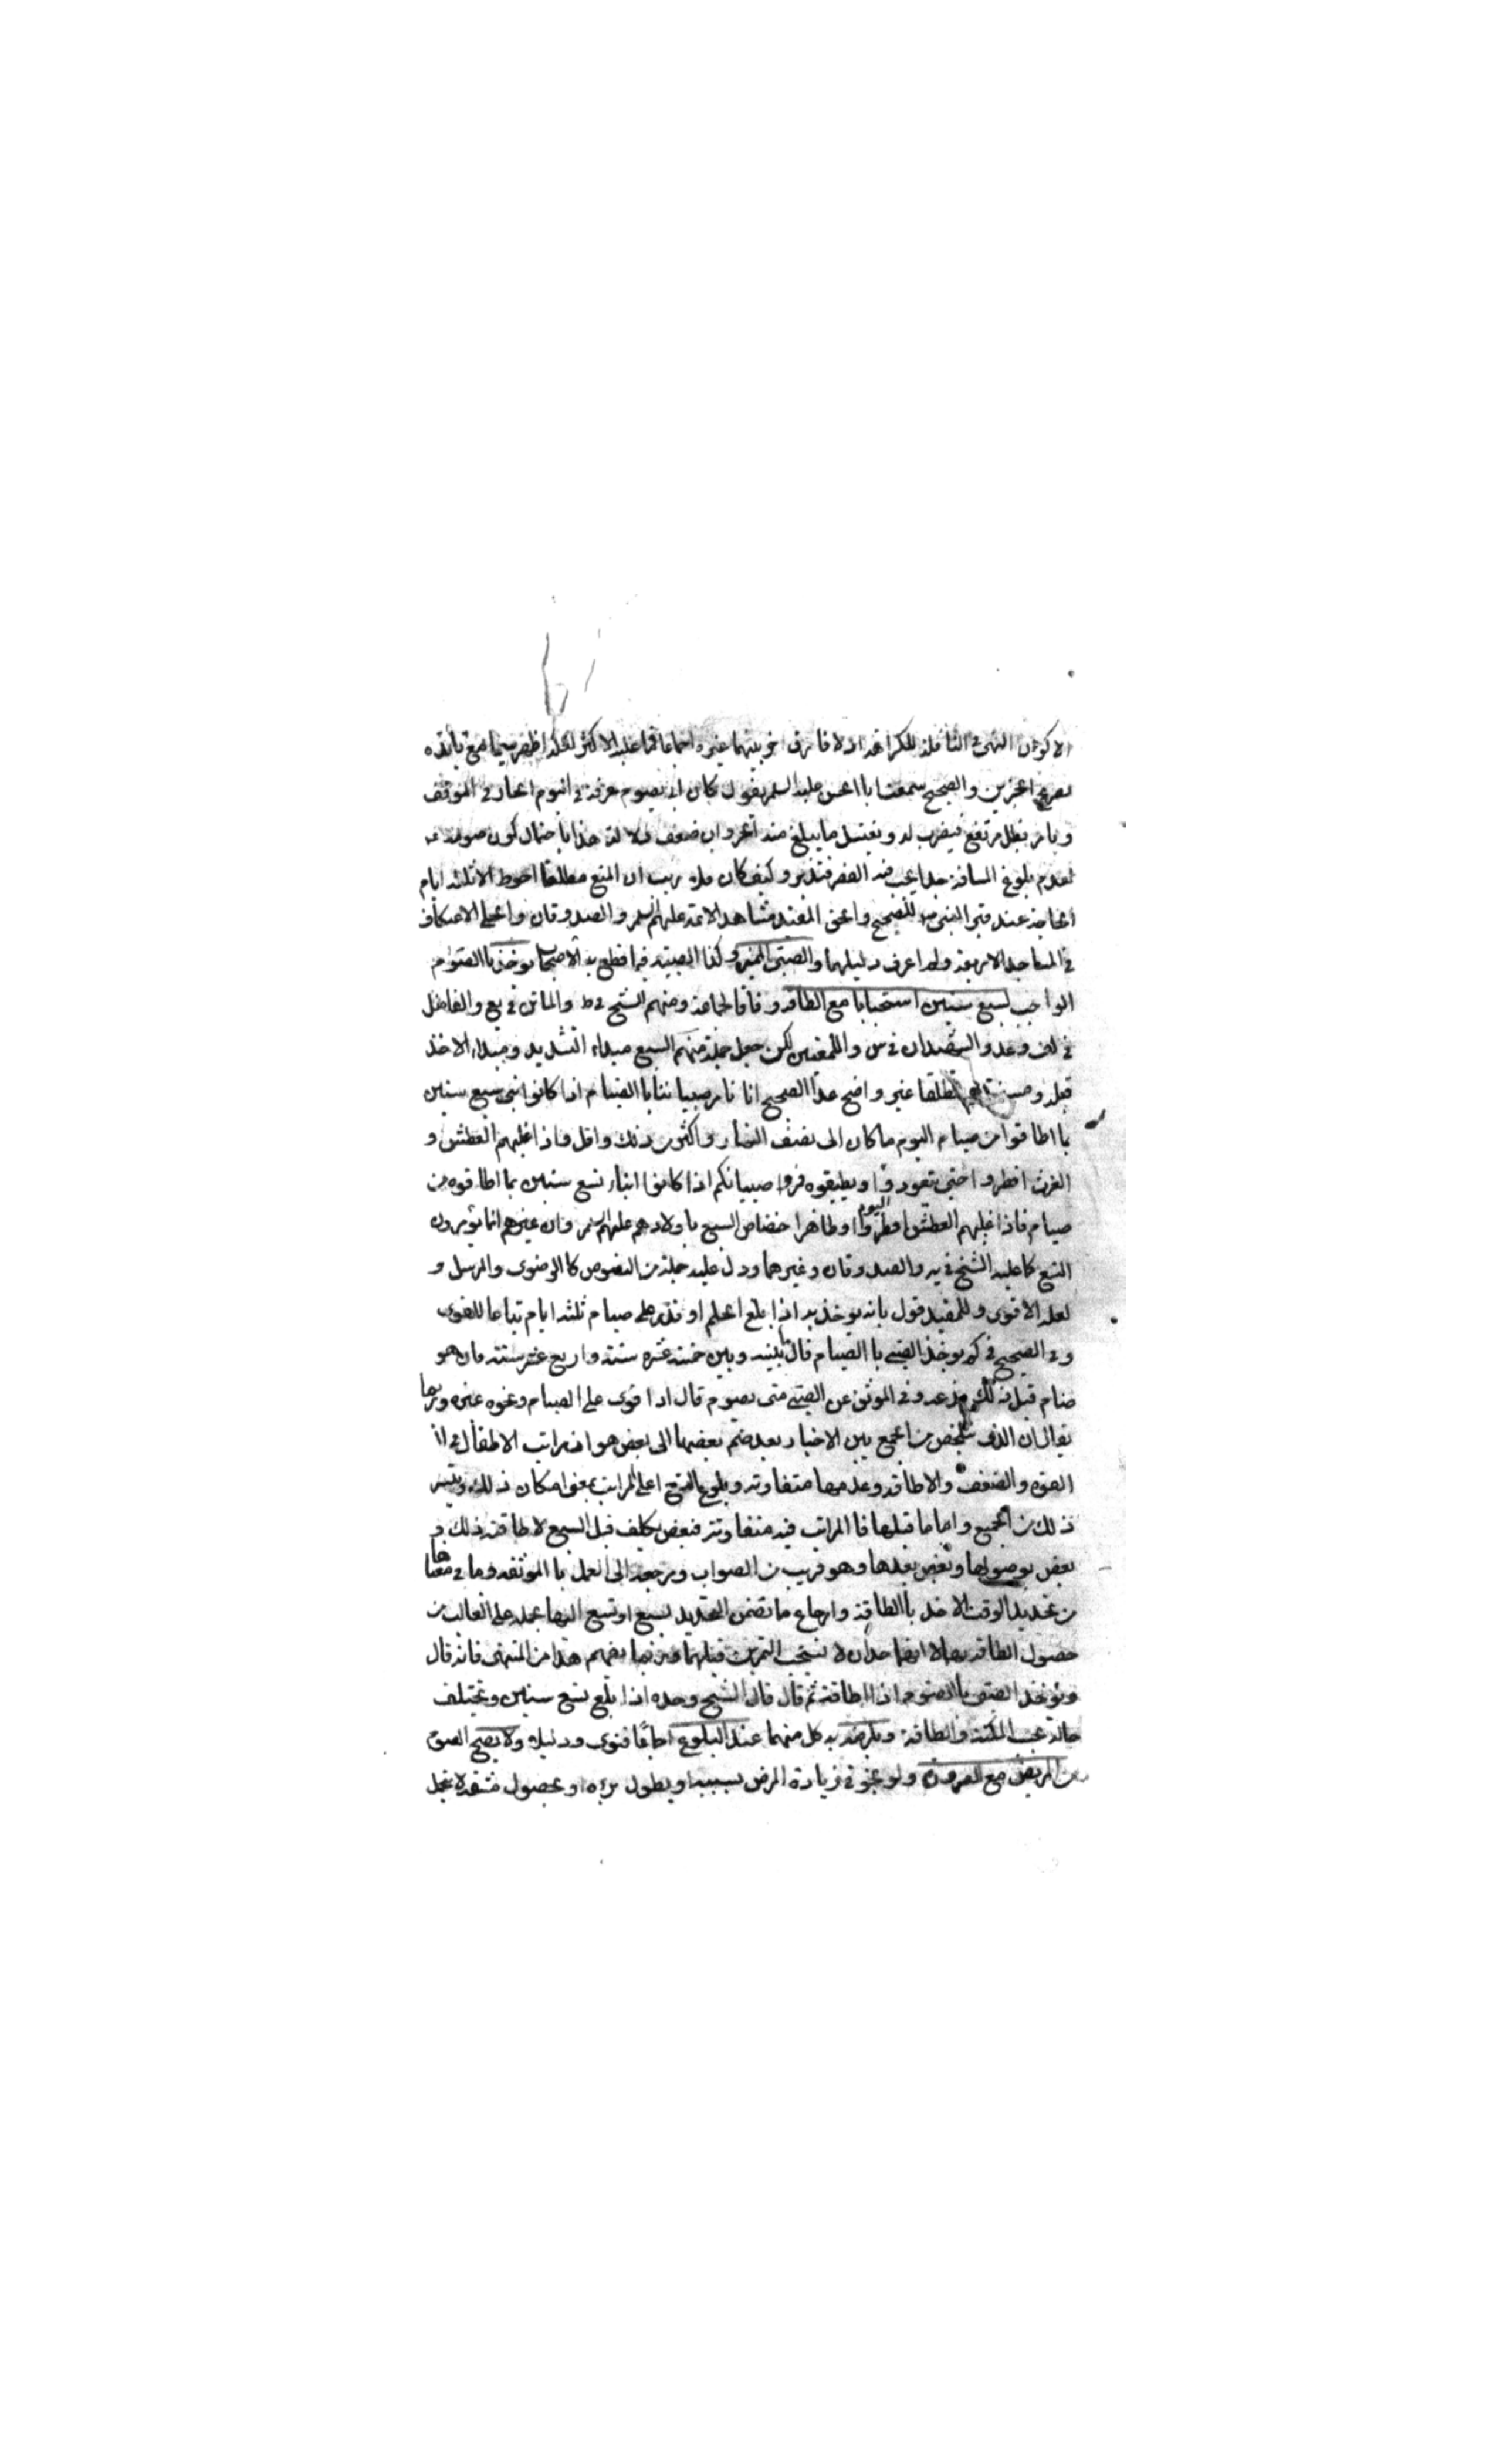 الاكوان النهى في النافلة للكراهة اذ لا فارق بينهما غيره اجماعا فما عليه الاكثر لعله اظهر سيما مع تايده
بصريح الخبرين والصحيح سمعت ابا الحسن عليه السلم يقول كان ابى يصوم عرفة في اليوم الحار في الموقف
ويامر بظل مرتفع فيضرب له ويغتسل مما يبلغ منه الحر وان ضعف دلالته هذا باحتمال كون صومه
لعدم بلوغ المسافة حدا يجب فيه القصر فتدبر وكيف كان فلا ريب ان المنع مطلقا احوط الا ثلثة ايام
الحاجة عند قبر النبى للصحيح والحق المفيد مشاهد الائمة عليهم السلم والصدوقان والحلى الاعتكاف
في المساجد الاربعة ولم اعرف دليلهما والصبى المميز وكذا الصبية فيما قطع به الاصحاب يؤخذ باالصوم
الواجب لسبع سنين استحبابا مع الطاقة وفاقا لجماعة ومنهم الشيخ في ط والماتن في يع والفاضل
في لف وعد والشهيدان في س واللمعتين لكن جعل جملة منهم السبع مبداء التشديد ومبداء الاخذ
قبله ومستنده مطلقا غير واضح عدا الصحيح انا نامر صبياننا باالصيام اذا كانوا بنى سبع سنين
بما اطاقوا من صيام اليوم ما كان الى نصف النهار واكثر من ذلك واقل فاذا غلبهم العطش و
الغرث افطروا حتى يتعودوا ويطيقوه فمروا صبيانكم اذا كانوا ابناء تسع سنين بما اطاقوه من
صيام اليوم فاذا غلبهم العطش افطروا وظاهرا ختصاص السبع باولادهم عليهم السلم وان غيرهم انما يؤمرون
التسع كما عليه الشيخ في يه والصدوقان وغيرهما ودل عليه جملة من النصوص كا الرضوى والمرسل و
لعله الاقوى وللمفيد قول بانه يؤخذ به اذا بلغ الحلم او قدر على صيام ثلثة ايام تباعا للقوى
وفي الصحيح في كم يؤخذ الصبى باالصيام قال ما بينه وبين خمسة عشرة سنة واربع عشر سنة فان هو
صام قبل ذلك فدعه وفي الموثق عن الصبى متى يصوم قال اذا قوى على الصيام ونحوه غيره وربما
يقال ان الذى يتلخص من الجمع بين الاخبار بعد ضم بعضها الى بعض هو ان مراتب الاطفال في
القوة والضعف والاطاقة وعدمها متفاوتة وبلوغ التسع اعلى المراتب بمعنى امكان ذلك وتيسر
ذلك من الجميع واما ما قبلها فا المراتب فيه متفاوتة فبعض يكلف قبل السبع لاطاقته ذلك و
بعض بوصولها وبعض بعدها وهو قريب من الصواب ومرجعه الى العمل با الموثقة وما في معناها
من تحديد الوقت الاخذ باالطاقة وارجاع ما تضمن التحديد بسبع او تسع اليها بحمله على الغالب من
حصول الطاقة بهما لا انهما حدان لا يستحب التمرين قبلهما وربما يفهم هذا من المنتهى فانه قال
ويؤخذ الصبى باالصوم اذا اطاقه ثم قال قال الشيخ وحده اذا بلغ تسع سنين ويختلف
حاله بحسب المكنة والطاقة ويلزم به كل منهما عند البلوغ اجماعا فتوى ودليلا ولا يصح الصوم
من المريض مع الضرر به ولو بنحو في زيادة المرض بسببه او بطول برءه او بحصول مشقة لا يتحمل